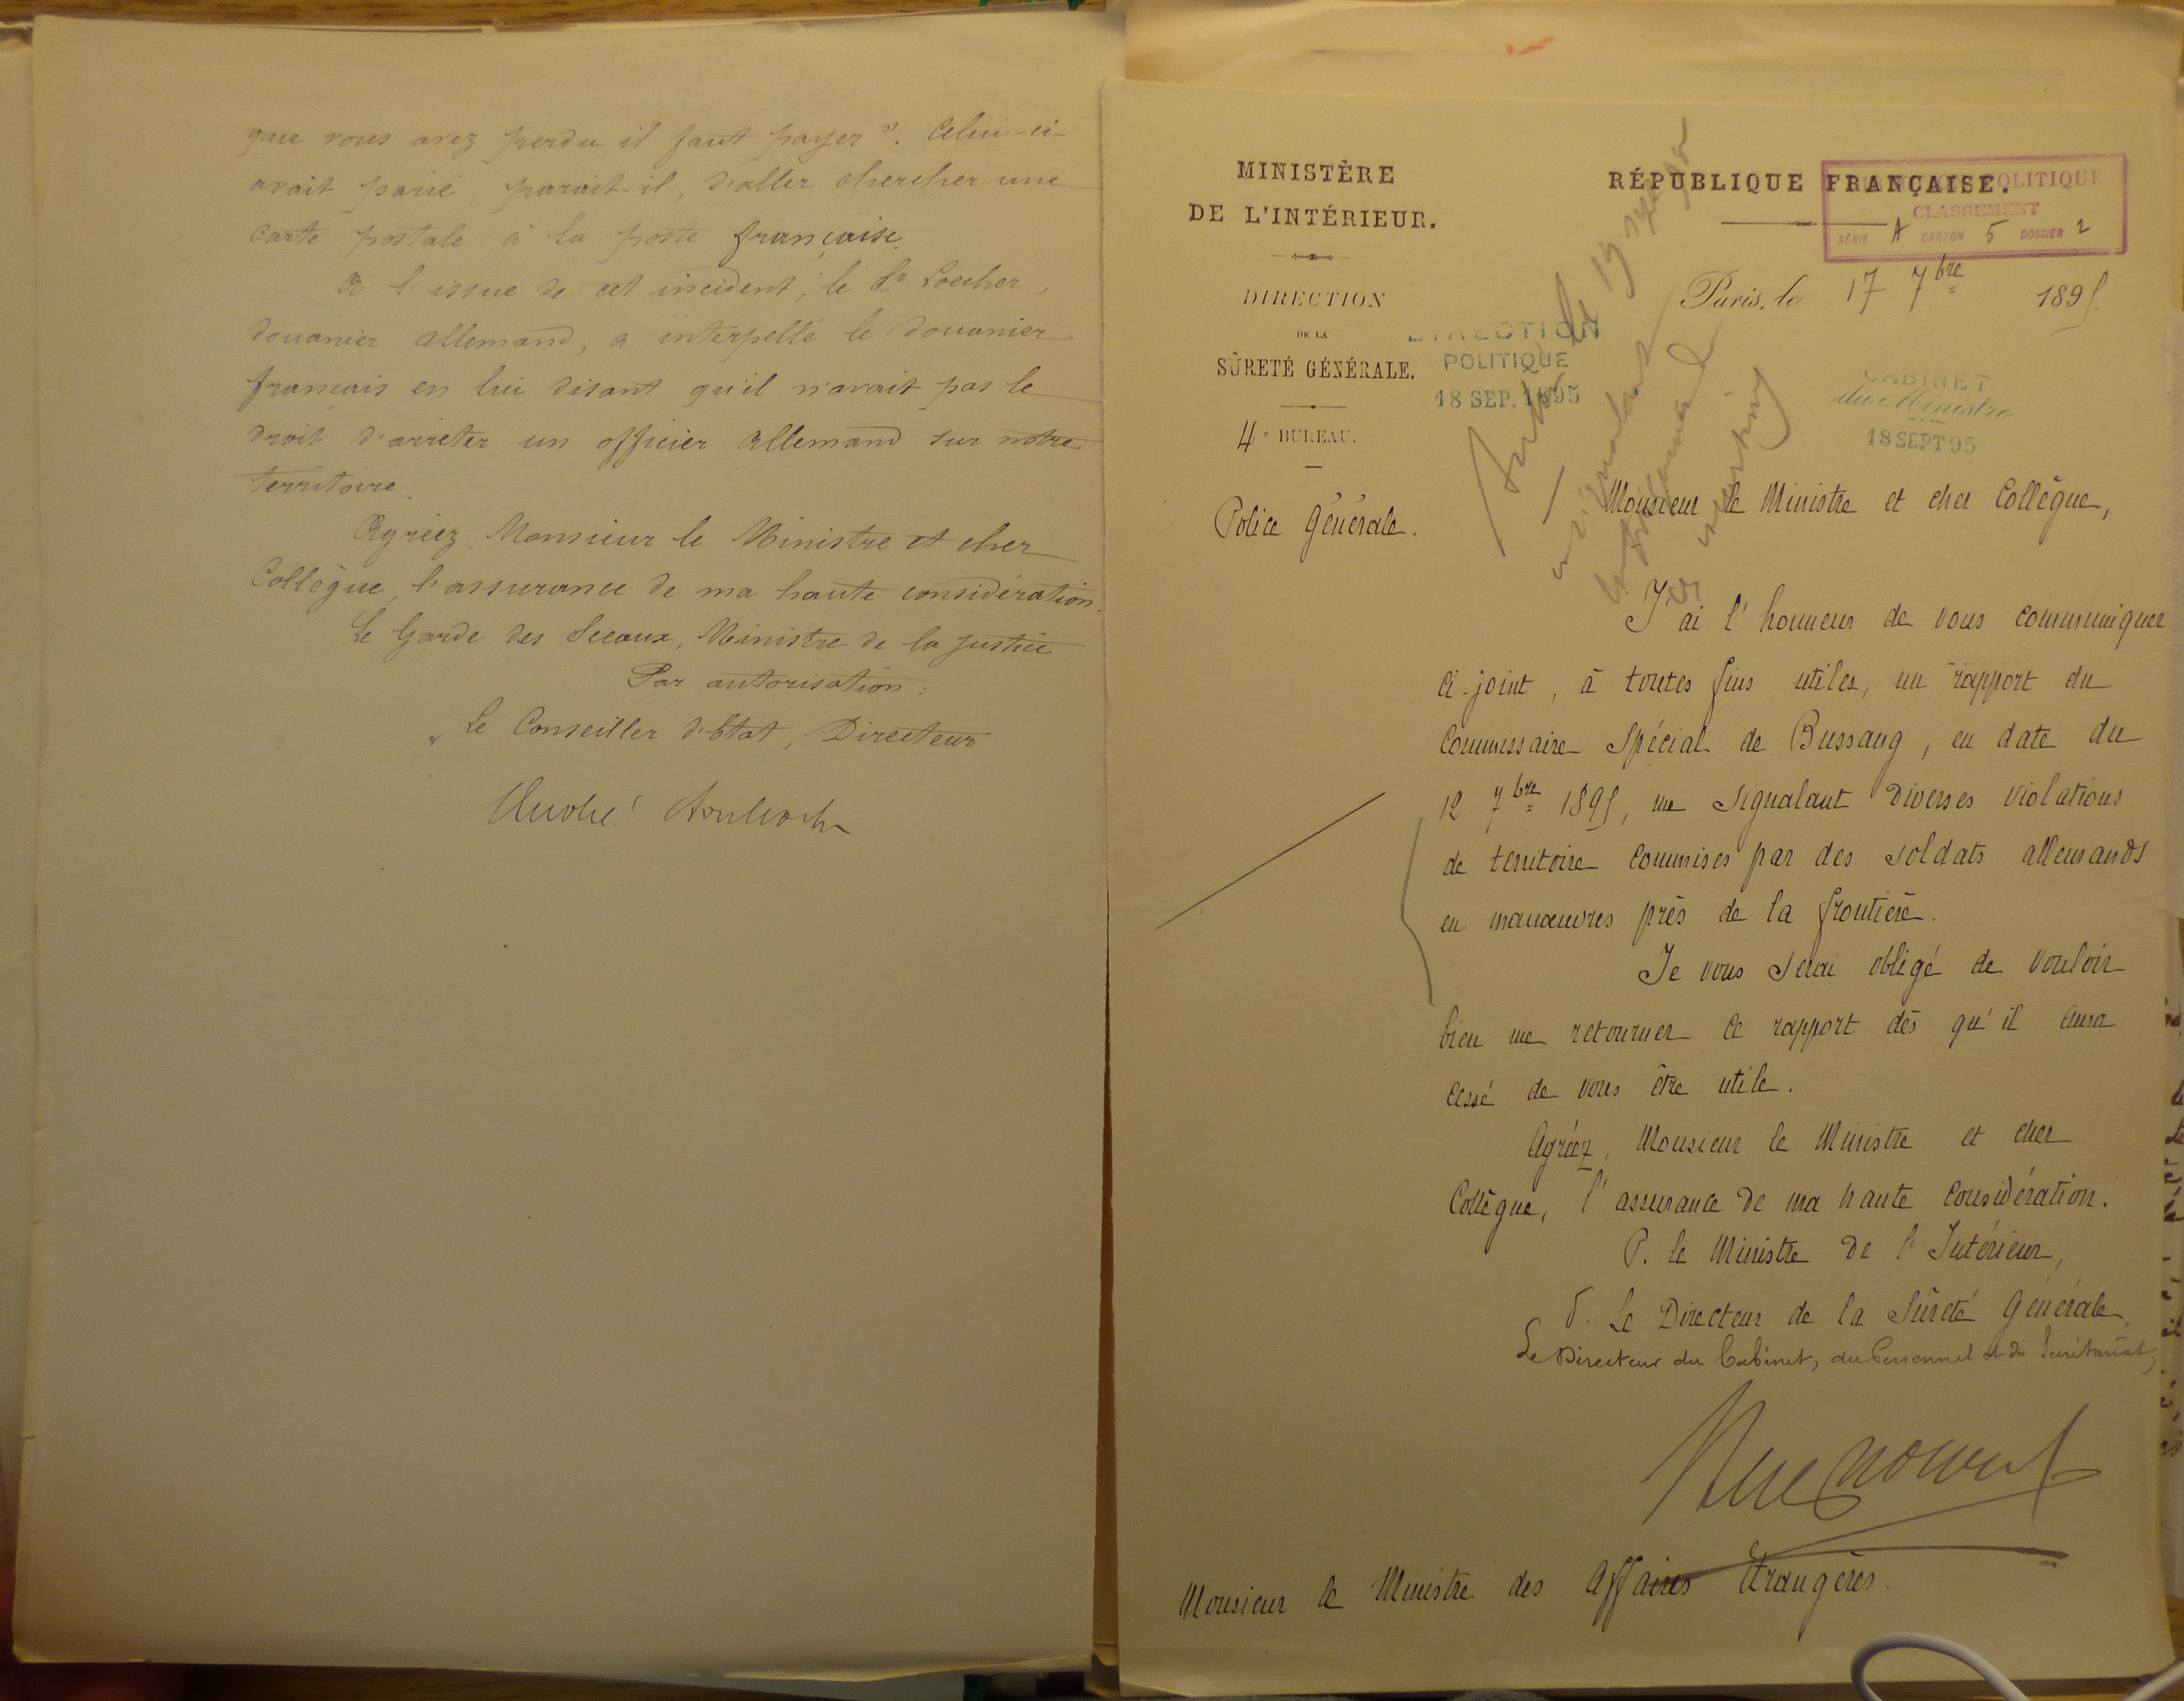 que vous avez perdu il faut payer". Celui-ci
avait parié, parait-il, d'aller chercher une
carte postale à la poste française.
A l'issue de cet incident, le Sr Locher,
douanier allemand, a interpellé le douanier
français en lui disant qu'il n'avait pas le
droit d'arrêter un officier allemand sur notre
territoire.
Agréez, Monsieur le Ministre et cher
Collègue, l'assurance de ma haute considération.
Le Garde des Sceaux, Ministre de la Justice
Par autorisation :
Le Conseiller d'Etat, Directeur
MINISTÈRE
DE L'INTÉRIEUR.
DIRECTION
DE LA
SÛRETÉ GÉNÉRALE.
4e BUREAU.
Police Générale.
RÉPUBLIQUE FRANÇAISE.
POLITIQUE
CLASSEMENT
SÉRIE A CARTON 5 DOSSIER 2
Paris, le 17 7bre 1895.
DIRECTION
POLITIQUE
18 SEP. 1895
CABINET
du Ministre
18 SEPT 95
Monsieur le Ministre et cher Collègue,
J'ai l'honneur de vous communiquer
ci-joint, à toutes fins utiles, un rapport du
Commissaire Spécial de Bussang, en date du
12 7bre 1895, me signalant diverses violations
de territoire commises par des soldats allemands
en manœuvres près de la frontière.
Je vous serai obligé de vouloir
bien me retourner ce rapport dès qu'il aura
cessé de vous être utile.
Agréez, Monsieur le Ministre et cher
Collègue, l'assurance de ma haute considération.
P. le Ministre de l'Intérieur,
P. Le Directeur de la Sûreté Générale,
Le Directeur du Cabinet, du Personnel et du Secrétariat,
Monsieur le Ministre des Affaires Etrangères.